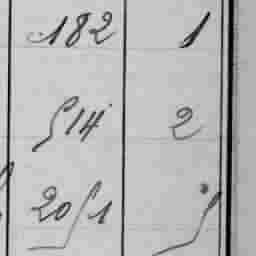 182 1
514 2
20/1